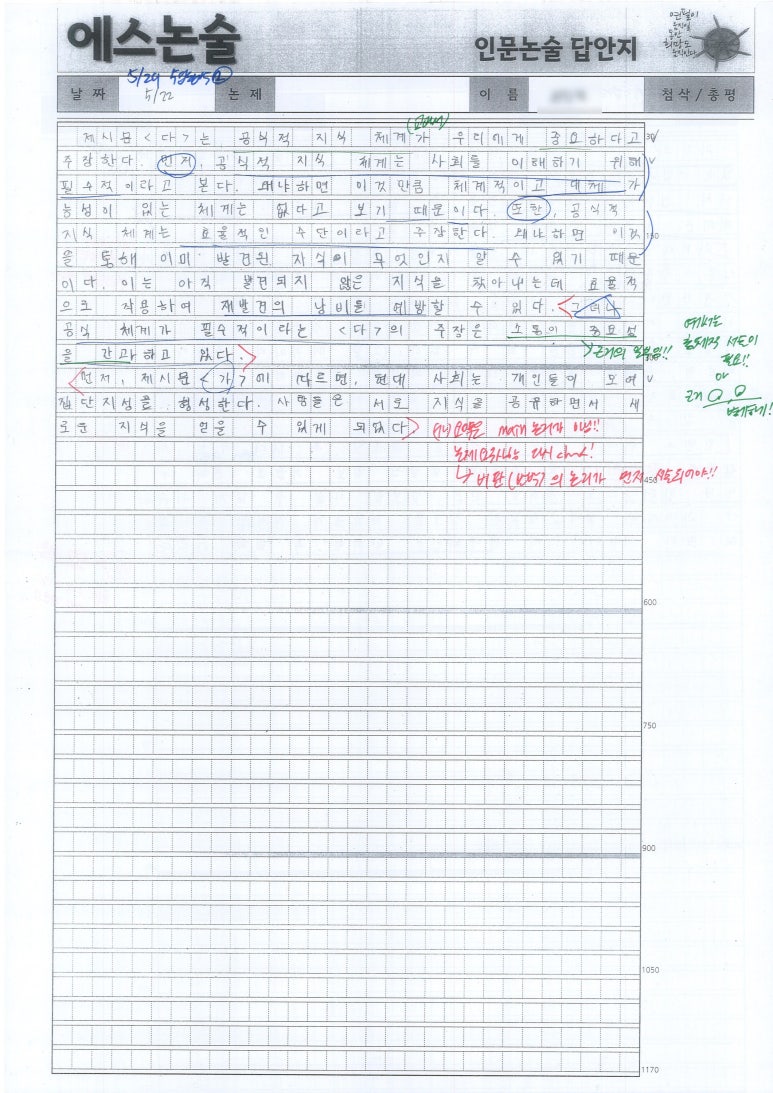 에스논술
인문논술 답안지
5/29
날 짜 5/22 논 제 이 름 첨삭/총평
제시문<다>는 공식적 지식 체계가 우리에게 중요하다고
주장한다. 먼저, 공식적 지식 체계는 사회를 이해하기 위해
필수적이라고 본다. 왜냐하면 이것만큼 체계적이고 대체 가
능성이 있는 체계는 없다고 보기 때문이다. 또한, 공식적
지식 체계는 효율적인 수단이라고 주장한다. 왜냐하면 이것
을 통해 이미 발견된 지식이 무엇인지 알 수 있기 때문
이다. 이는 아직 발견되지 않은 지식을 찾아내는데 효율적
으로 작용하여 재발견의 낭비를 예방할 수 있다. 그러나
공식 체계가 필수적이라는 <다>의 주장은 소통의 중요성
을 간과하고 있다.
먼저, 제시문<가>에 따르면, 현대 사회는 개인들이 모여
집단지성을 형성한다. 사람들은 서로 지식을 공유하면서 새
로운 지식을 얻을 수 있게 되었다
여기서는
서술이
필요!!
or
근거
논리가 아님!!
다시 check!
비판(반박)의 논리가 먼저 서술되어야!!
300
450
600
750
900
1050
1170